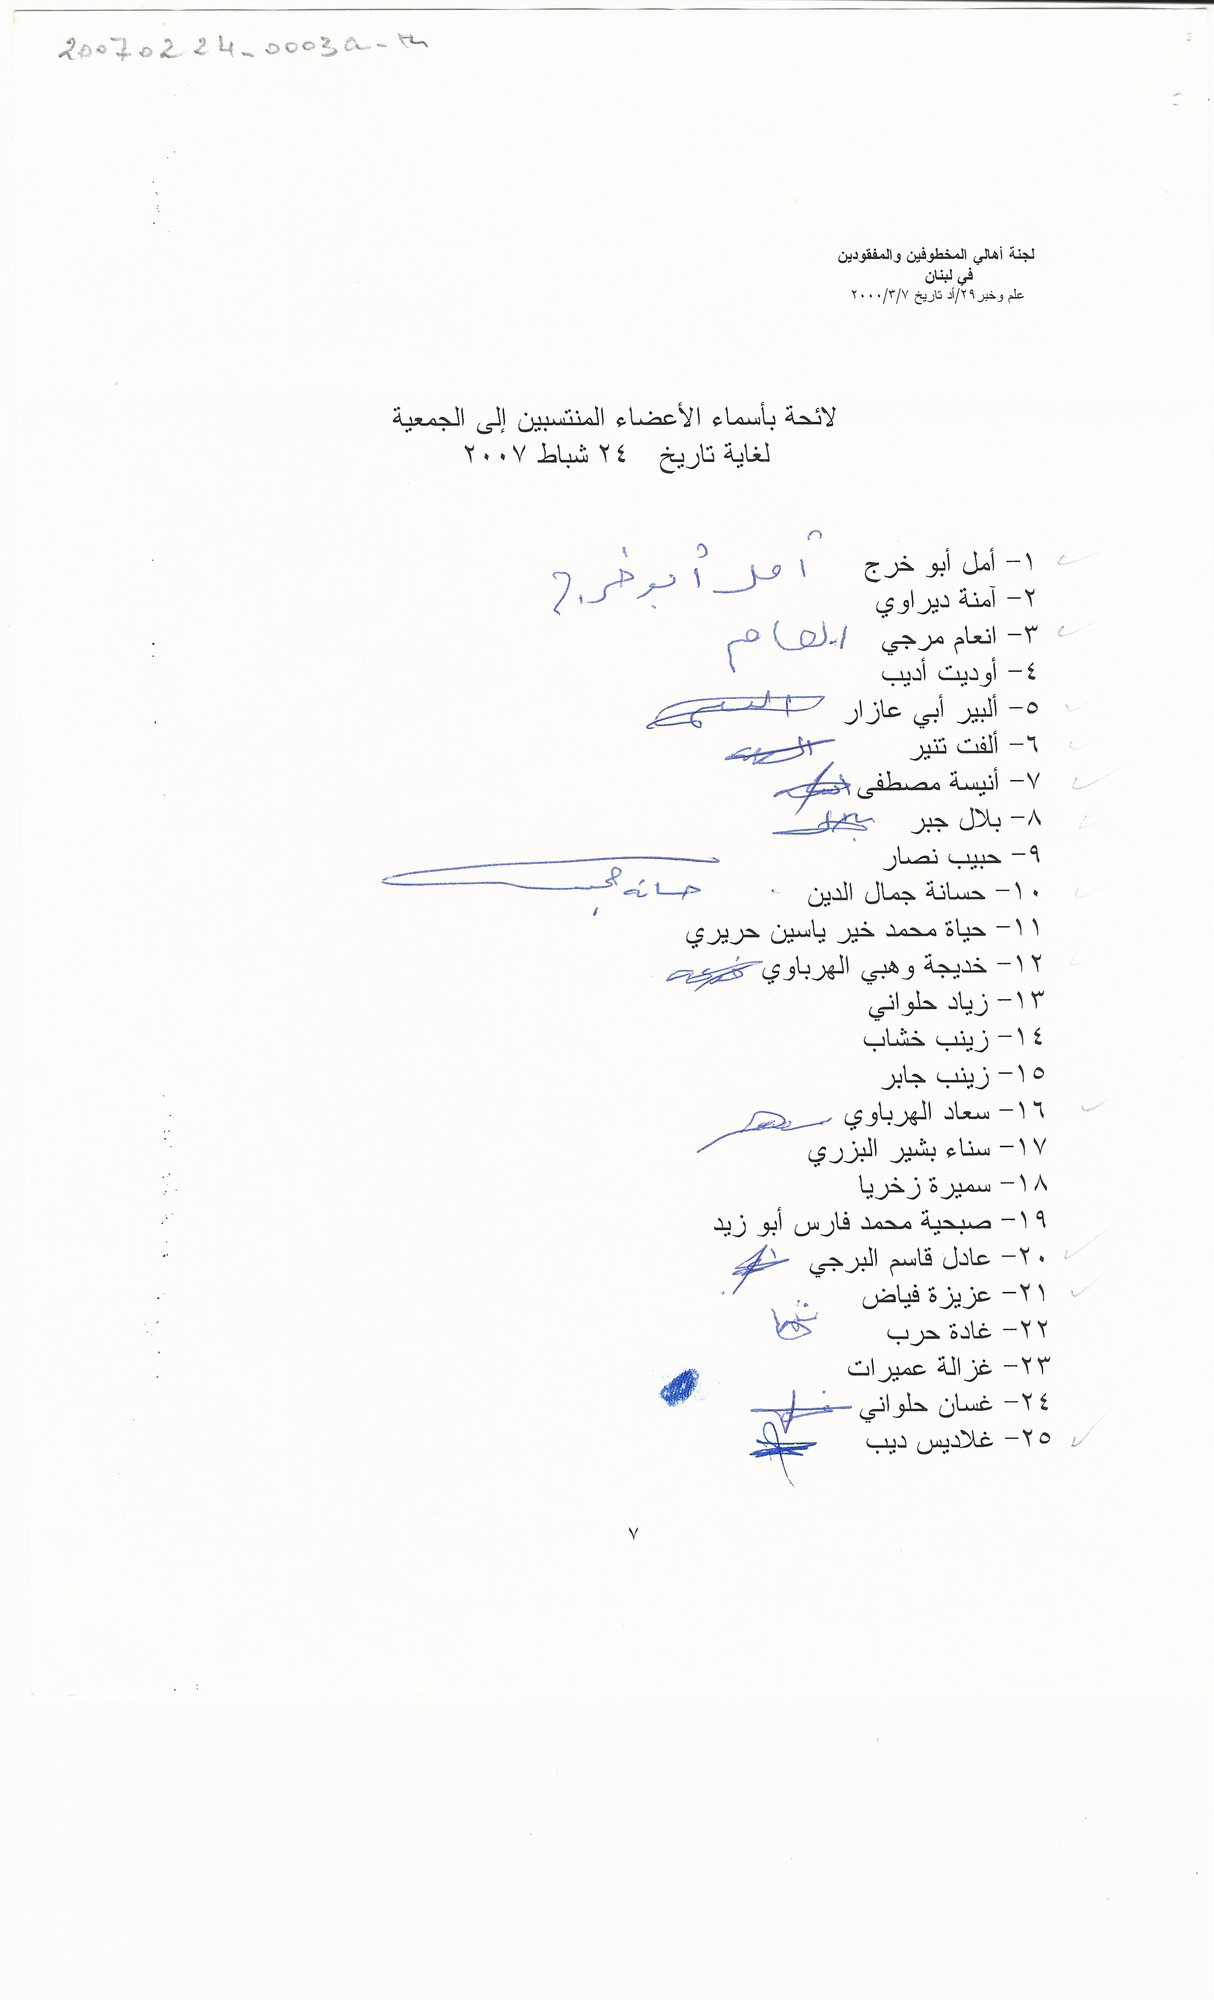 20070224_0003a_m
لجنة أهالي المخطوفين والمفقودين
في لبنان
علم وخبر٢٩/أد تاريخ ٢٠٠٠/٣/٧
لائحة بأسماء الأعضاء المنتسبين إلى الجمعية
لغاية تاريخ ٢٤ شباط ٢٠٠٧
١- أمل أبو خرج أمل أبو خرج
٢- آمنة ديراوي
٣- انعام مرجي انعام
٤- أوديت أديب
٥- ألبير أبي عازار
٦- ألفت تنير
٧- أنيسة مصطفى
٨- بلال جبر
٩- حبيب نصار
١٠- حسانة جمال الدين حسانة
١١- حياة محمد خير ياسين حريري
١٢- خديجة وهبي الهرباوي
١٣- زياد حلواني
١٤- زينب خشاب
١٥- زينب جابر
١٦- سعاد الهرباوي
١٧- سناء بشير البزري
١٨- سميرة زخريا
١٩- صبحية محمد فارس أبو زيد
٢٠- عادل قاسم البرجي
٢١- عزيزة فياض
٢٢- غادة حرب
٢٣- غزالة عميرات
٢٤- غسان حلواني
٢٥- غلاديس ديب
٧